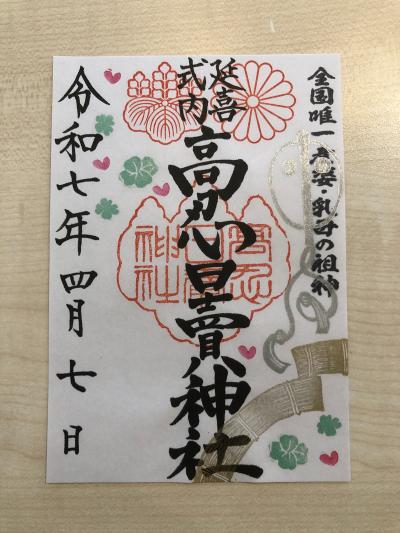 全国唯一 産婆・乳母の祖神
延喜
式内
高忍日賣神社
令和七年四月七日